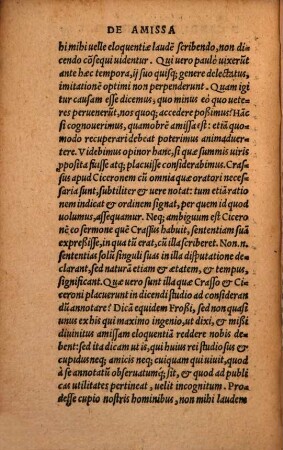 DE AMISSA
hi mihi uelle eloquentiæ laudẽ scribendo, non di
cendo cõsequi uidentur. Qui uero pauló uixerũt
ante hæc tempora, ij suo quisq; genere delectatus,
imitationẽ optimi non perpenderunt. Quam igi
tur causam esse dicemus, quo minus eò quo uete-
res peruenerũt, nos quoq; accedere possimus? Hãc
si cognouerimus, quamobrẽ amissa est: etiã quo=
modo recuperari debeat poterimus animaduer=
tere. Videbimus opinor hanc, si quæ summis uiris
p̱posita fuisse atq; placuisse considerabimus. Cras
sus apud Ciceronem cũ omnia quæ oratori neces=
saria sunt, subtiliter & uere notat: tum etiã ratio=
nem indicat & ordinem signat, per quem id quod
uolumus, assequamur. Neq; ambiguum est Cicero
nẽ co sermone quẽ Crassus habuit, sententiam suã
expressisse, in qua tũ erat, cũ illa scriberet. Non.n.
sententias solũ singuli suas in illa disputatione de=
clarant, sed naturã etiam & ætatem, & tempus,
significant. Quæ uero sunt illa quæ Crasso & Ci=
ceroni placuerunt in dicendi studio ad consideran
dũ annotare? Dicã equidem Froßi, sed annotare
nosse ex his qui maximo ingenio, ut dixi, & misti
diuinitus amissam eloquentiã reddere nobis de=
bent: sed ita dicam ut is, qui huius rei studiosus &
cupidusneq; amicis neq; cuiquam qui uiuit, quod
à se annotatũ obseruatumq́; sit, & quod ad publi
cas utilitates pertineat, uelit incognitum. Pro=
desse cupio nostris hominibus, non mihi laudem